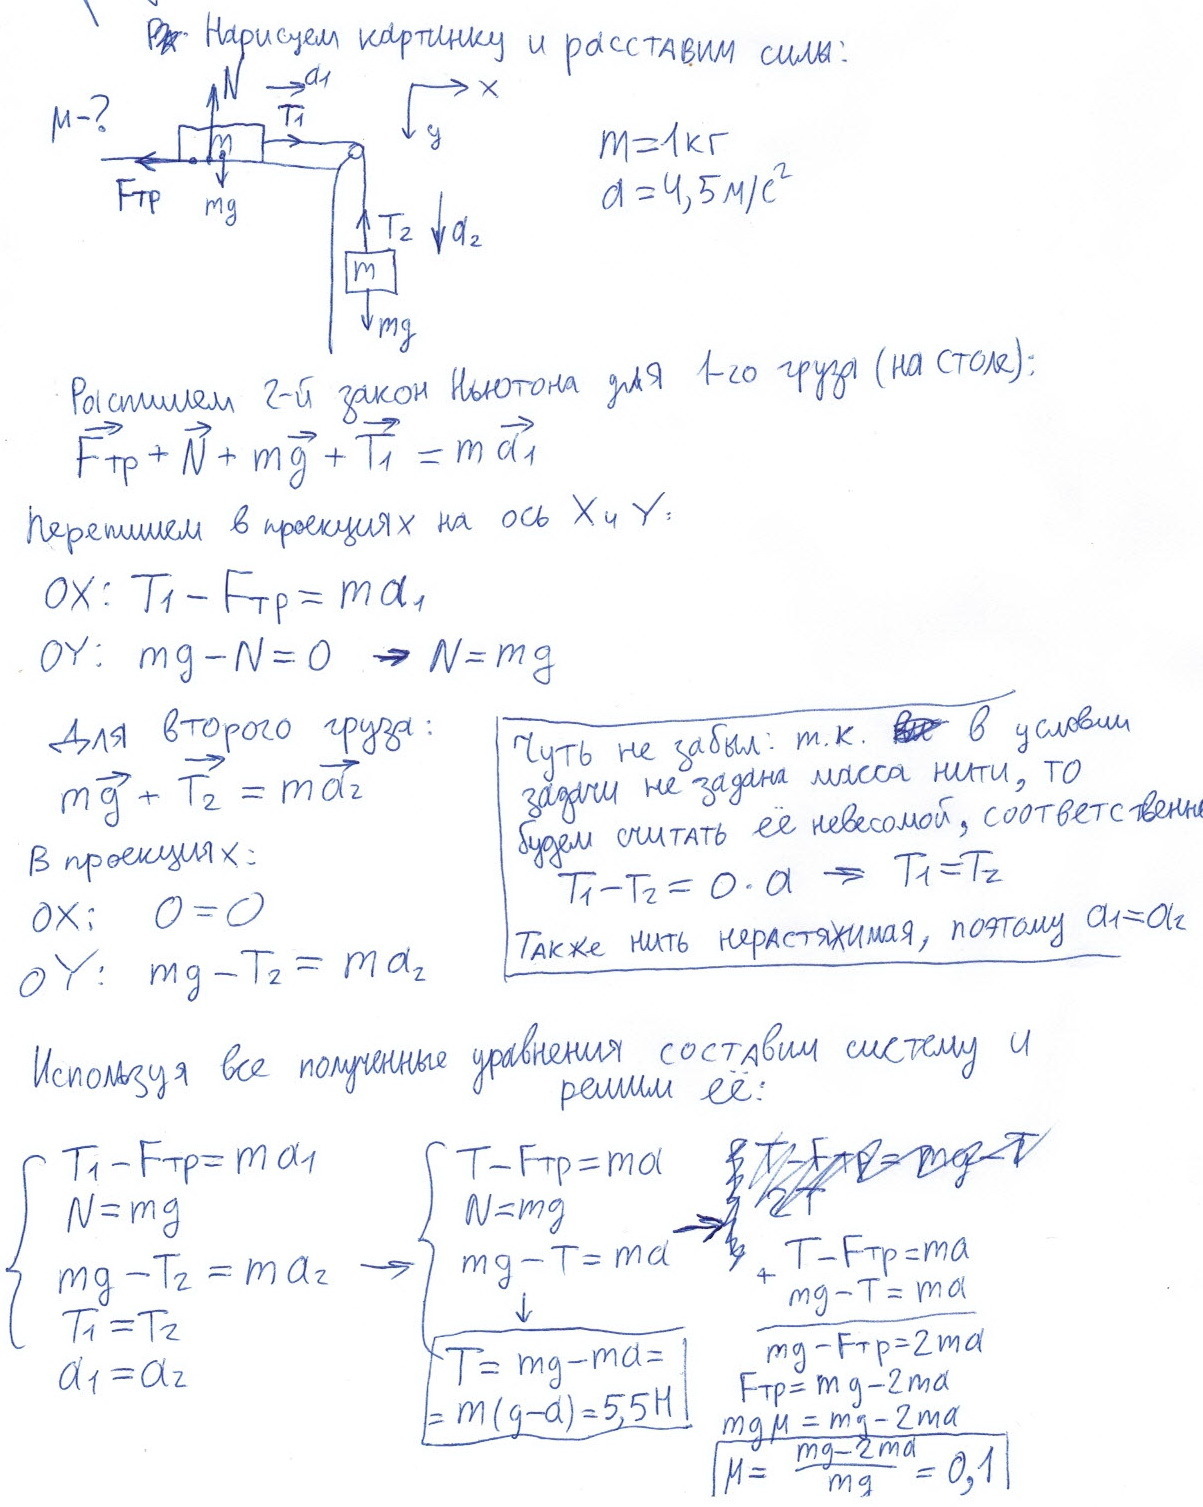 Нарисуем картинку и расставим силы:
N
a₁
T₁
x
y
μ-?
m
Fтр
mg
m=1кг
a=4,5м/с²
T₂
a₂
m
mg
Распишем 2-й закон Ньютона для 1-го груза (на столе):
F⃗тр + N⃗ + mg⃗ + T⃗₁ = ma⃗₁
Перепишем в проекциях на ось X и Y:
OX: T₁ - Fтр = ma₁
OY: mg - N = 0 → N = mg
Для второго груза:
mg⃗ + T⃗₂ = ma⃗₂
В проекциях:
OX: 0=0
OY: mg - T₂ = ma₂
Чуть не забыл: т.к. в условии
задачи не задана масса нити, то
будем считать её невесомой, соответственно
T₁-T₂ = 0·a → T₁=T₂
Также нить нерастяжимая, поэтому a₁=a₂
Используя все полученные уравнения составим систему и
решим её:
T₁-Fтр=ma₁
N=mg
mg-T₂=ma₂
T₁=T₂
a₁=a₂
→
T-Fтр=ma
N=mg
mg-T=ma
↓
T=mg-ma=
=m(g-a)=5,5Н
→
T-Fтр=mg-T
2T
+ T-Fтр=ma
mg-T=ma
mg-Fтр=2ma
Fтр=mg-2ma
mgμ=mg-2ma
μ= mg-2ma / mg = 0,1